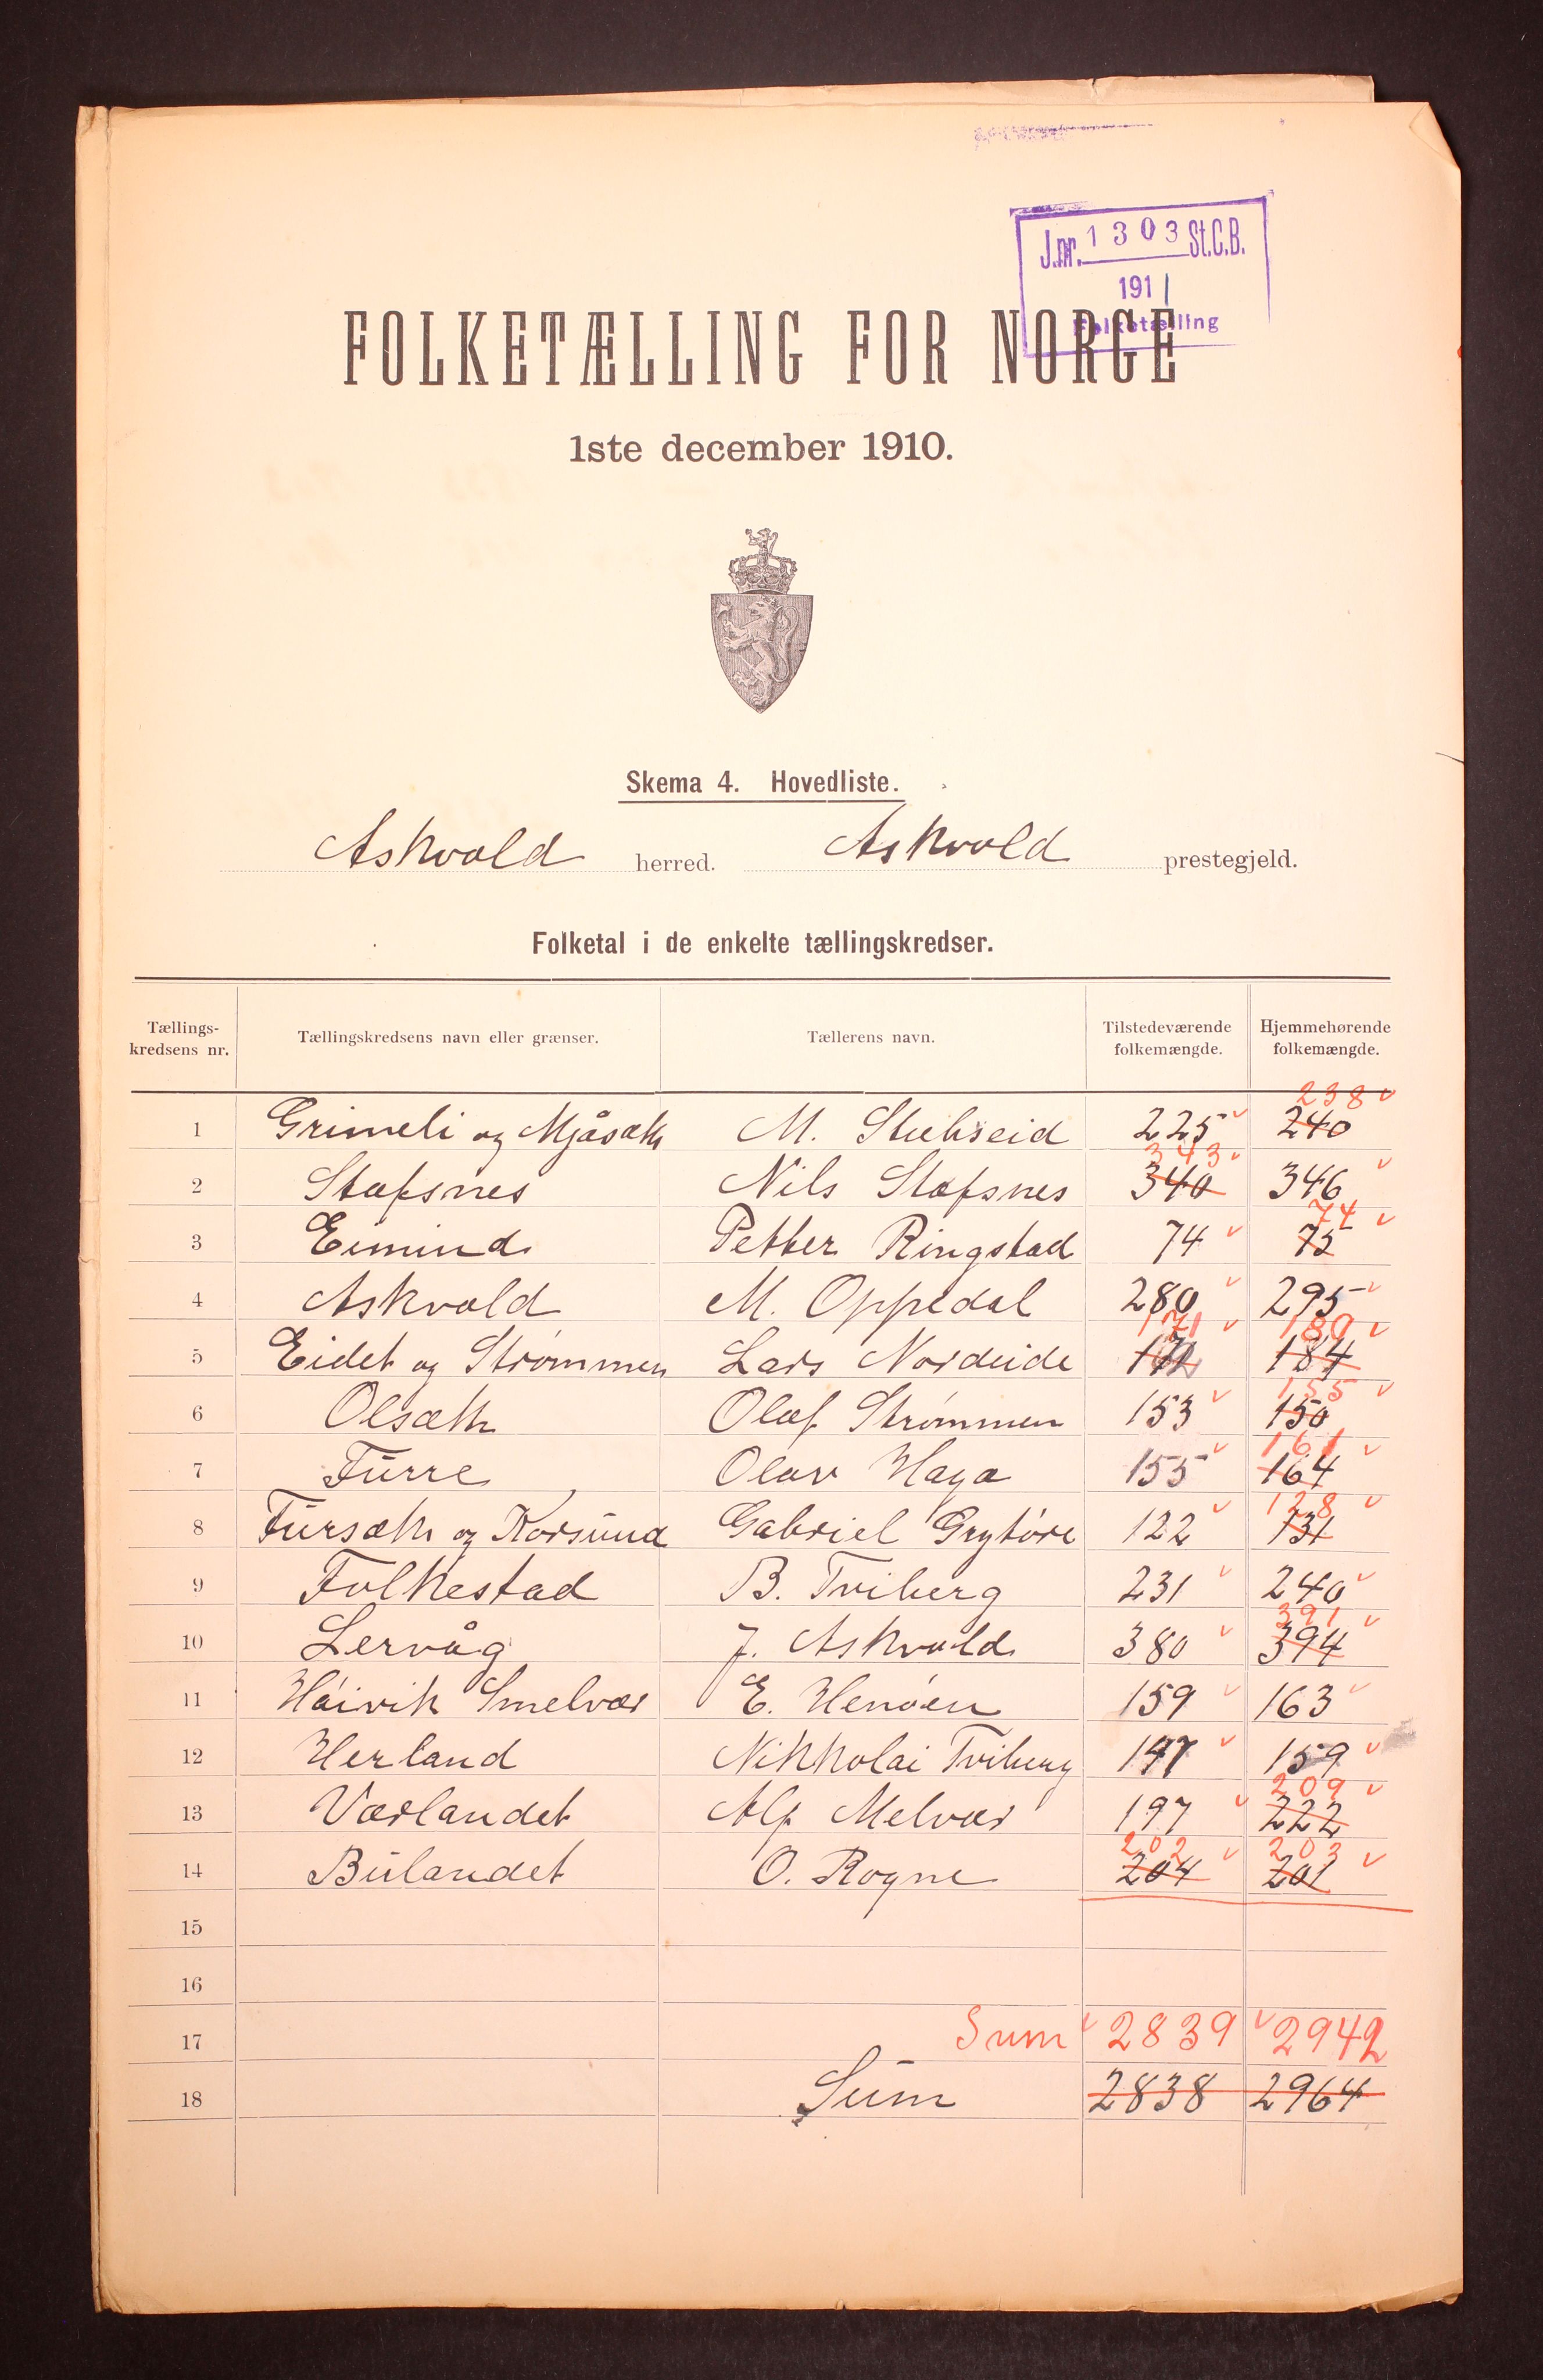 J.nr. 1303 St.C.B.
1911
Folketælling
FOLKETÆLLING FOR NORGE
1ste december 1910.
Skema 4. Hovedliste.
Askvold herred. Askvold prestegjeld.
Folketal i de enkelte tællingskredser.
Tællings-kredsens nr. Tællingskredsens navn eller grænser. Tællerens navn. Tilstedeværende folkemængde. Hjemmehørende folkemængde.
238
1 Grimeli og Mjåsæth M. 225 240
343
2 Stafsnes Nils Stafsnes 340 346
74
3 Eimind Petter Ringstad 74 75
4 Askvold M. Oppedal 280 295
171 180
5 Eidet og Strømmen Lars Nordeide 184
155
6 Olsæth Olaf Strømmen 153 150
161
7 Furre Olav Haga 155 164
128
8 Fursæth og Korsund Gabriel Grytøre 122 131
9 Folkestad B. Tviberg 231 240
391
10 Lervåg J. Askvold 380 394
11 Høivik Smelvær E. Henøen 159 163
12 Herland Nikkolai Tviberg 147 159
209
13 Værlandet Alf Melvær 197 222
202 203
14 Bulandet O. Rogne 204 201
15
16
17 Sum 2839 2942
18 Sum 2838 2964